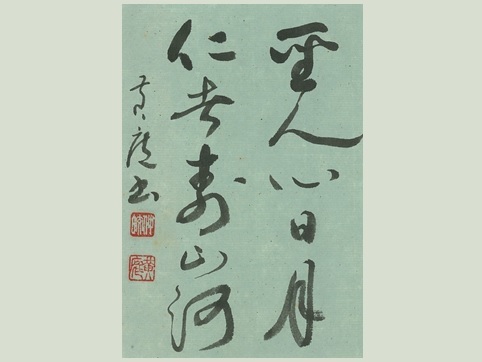 聖人心日月
仁者壽山河